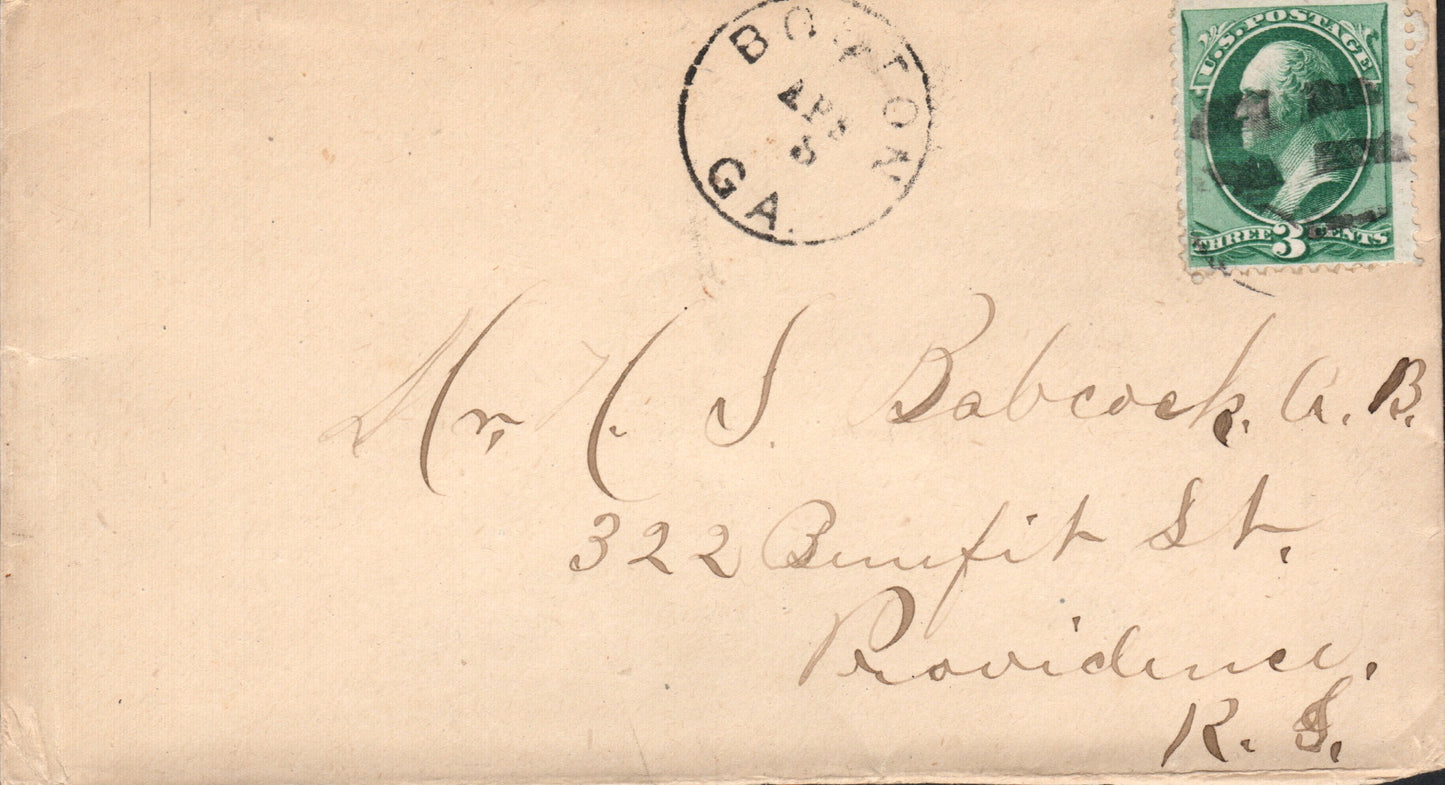 BOSTON
APR
5
GA.
U.S. POSTAGE
THREE 3 CENTS
Mr. H. S. Babcock. A. B.
322 Benefit St.
Providence,
R. I.